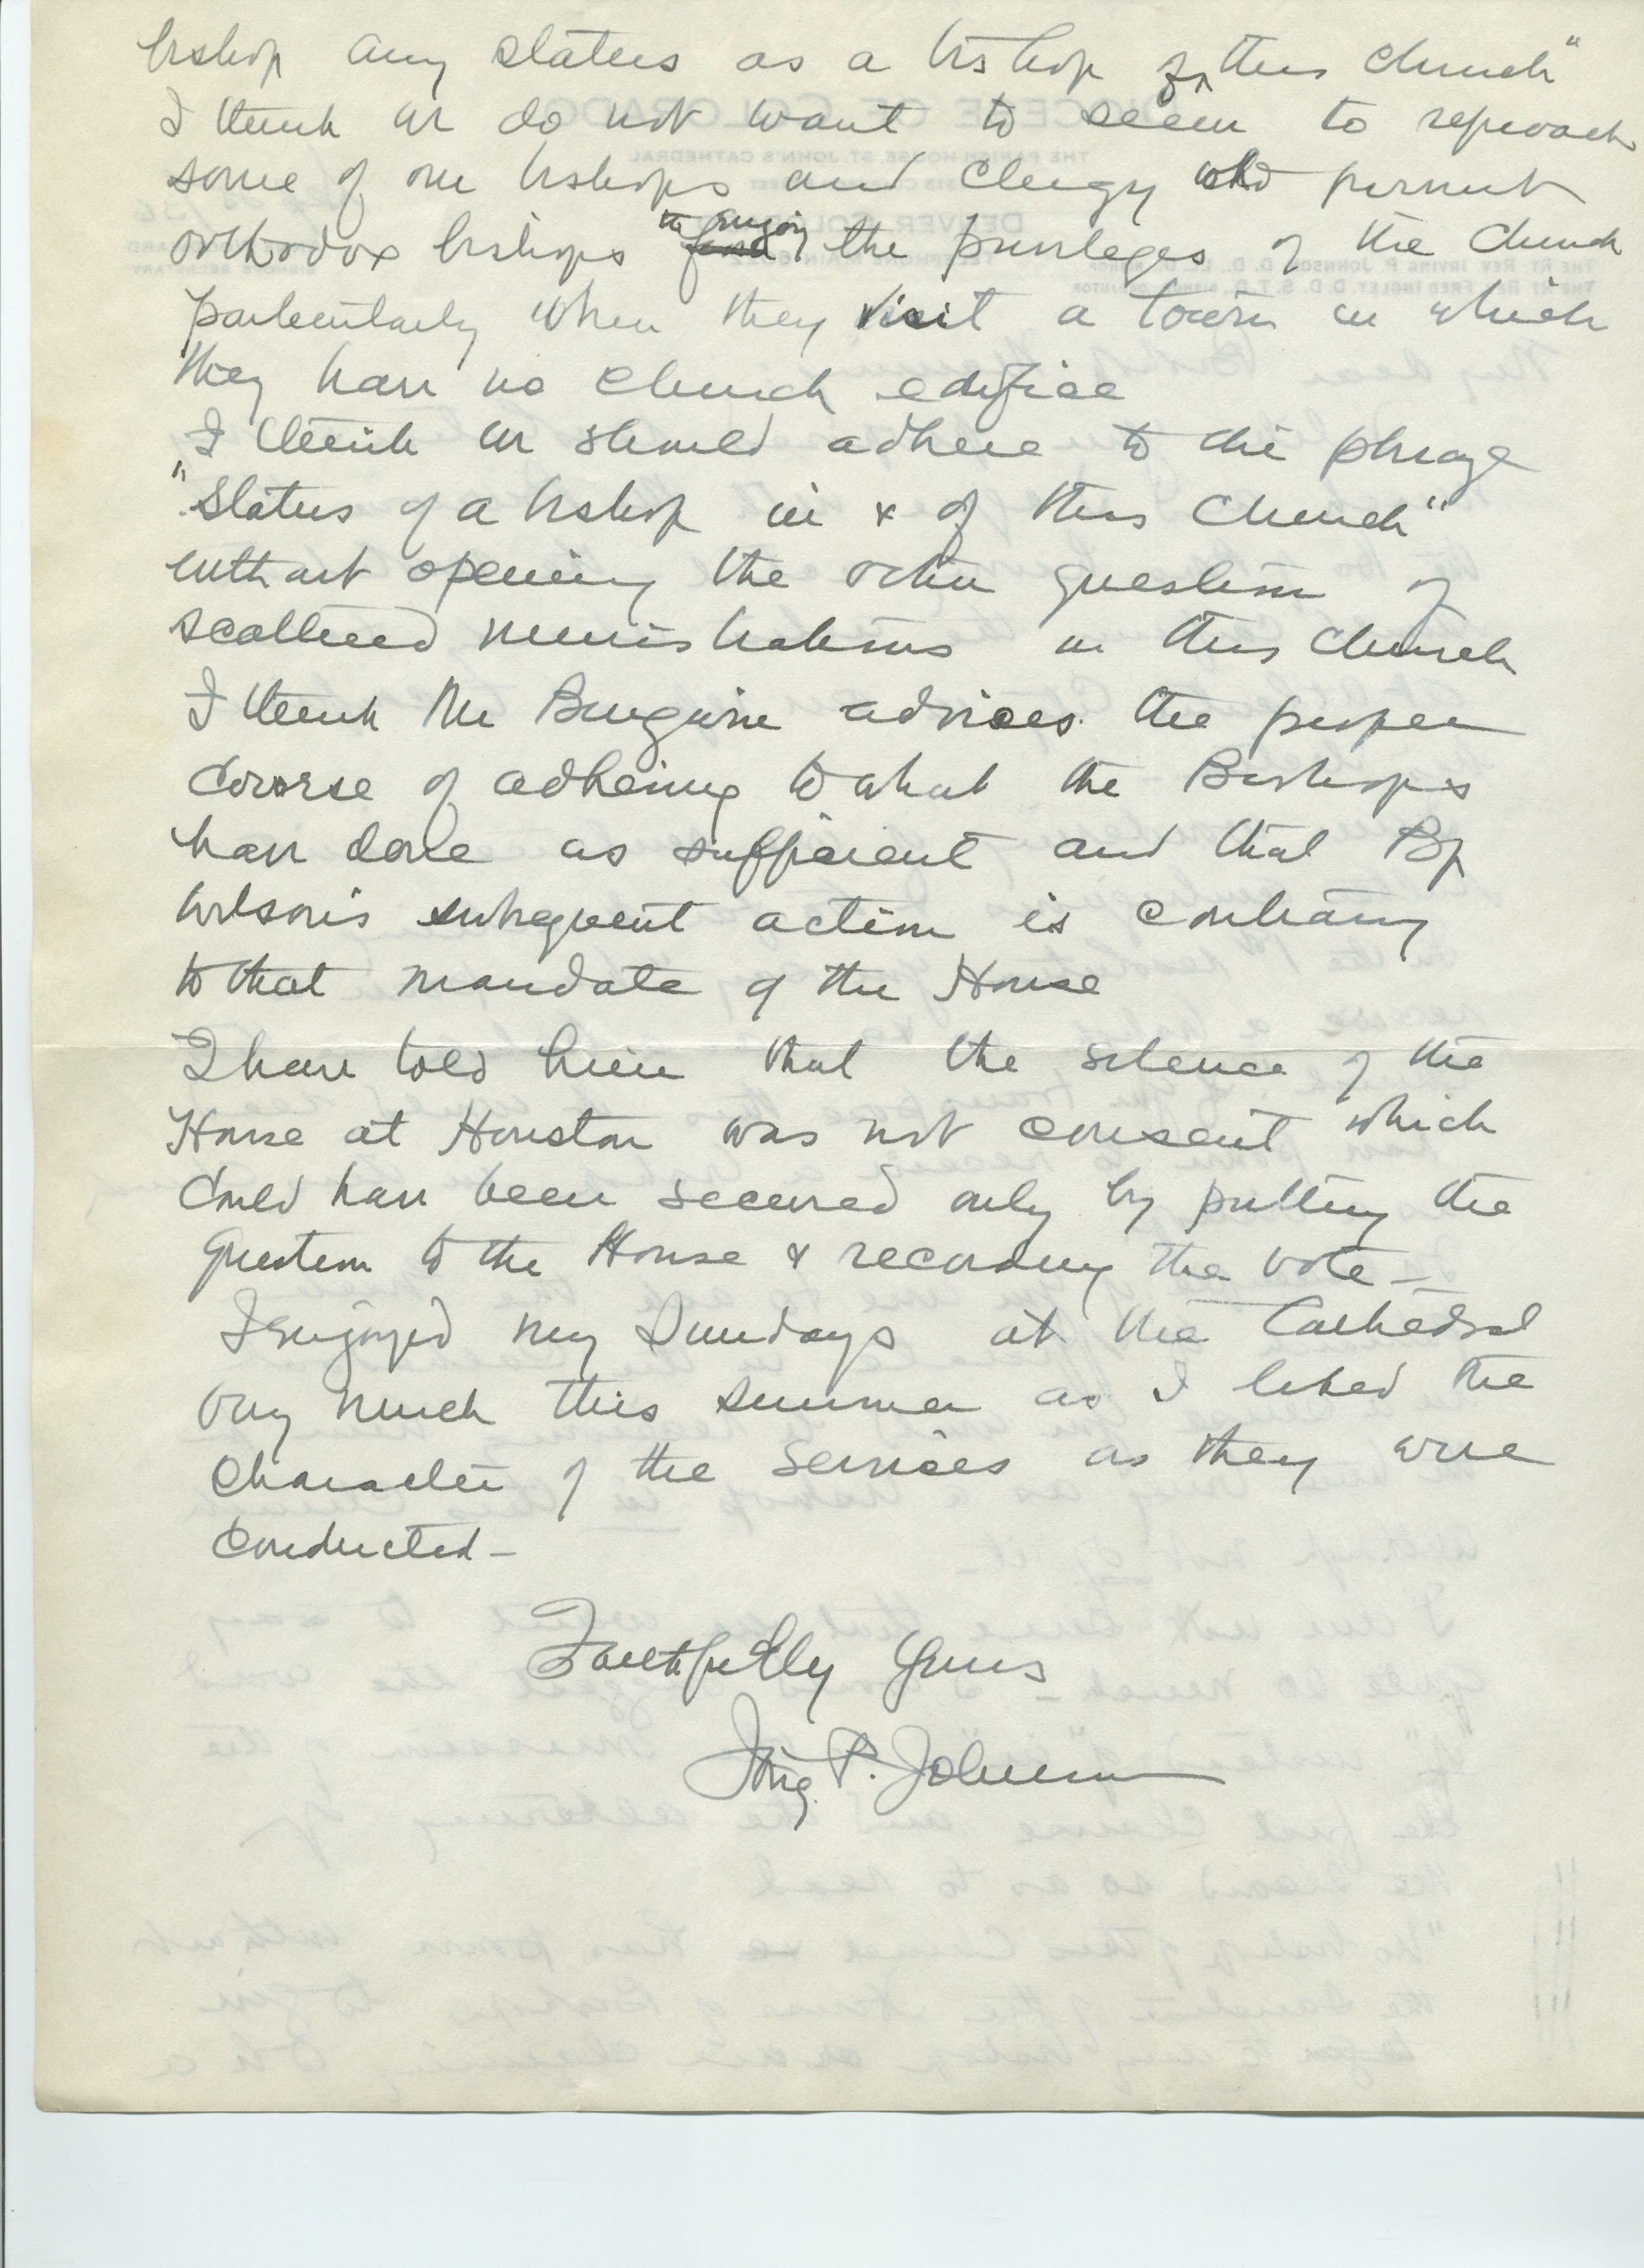 bishop any status as a bishop of this church"
I think we do not want to seem to reproach
some of our bishops and clergy who permit
orthodox bishops to enjoy the privileges of the Church
particularly when they visit a town in which
they have no church edifice
I think we should adhere to the phrase
"Status of a bishop in & of this Church"
without opening the other question of
scattered ministrations in this church
I think Mr Burgwin advises the proper
course of adhering to what the Bishops
have done as sufficient and that Bp
Wilson's subsequent action is contrary
to that mandate of the House
I have told him that the silence of the
House at Houston was not consent which
could have been secured only by putting the
question to the House & recording the vote –
I enjoyed my Sundays at the Cathedral
very much this summer as I liked the
character of the services as they were
conducted –
Faithfully yours
Irving P. Johnson